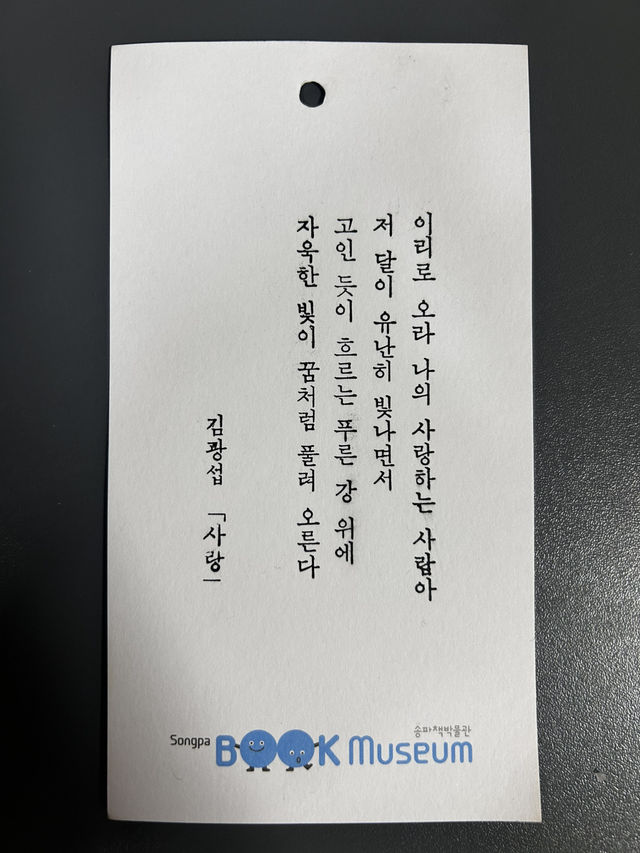 이리로 오라 나의 사랑하는 사람아
저 달이 유난히 빛나면서
고인 듯이 흐르는 푸른 강 위에
자욱한 빛이 꿈처럼 풀려 오른다
김광섭 「사랑」
송파책박물관
Songpa BOOK Museum